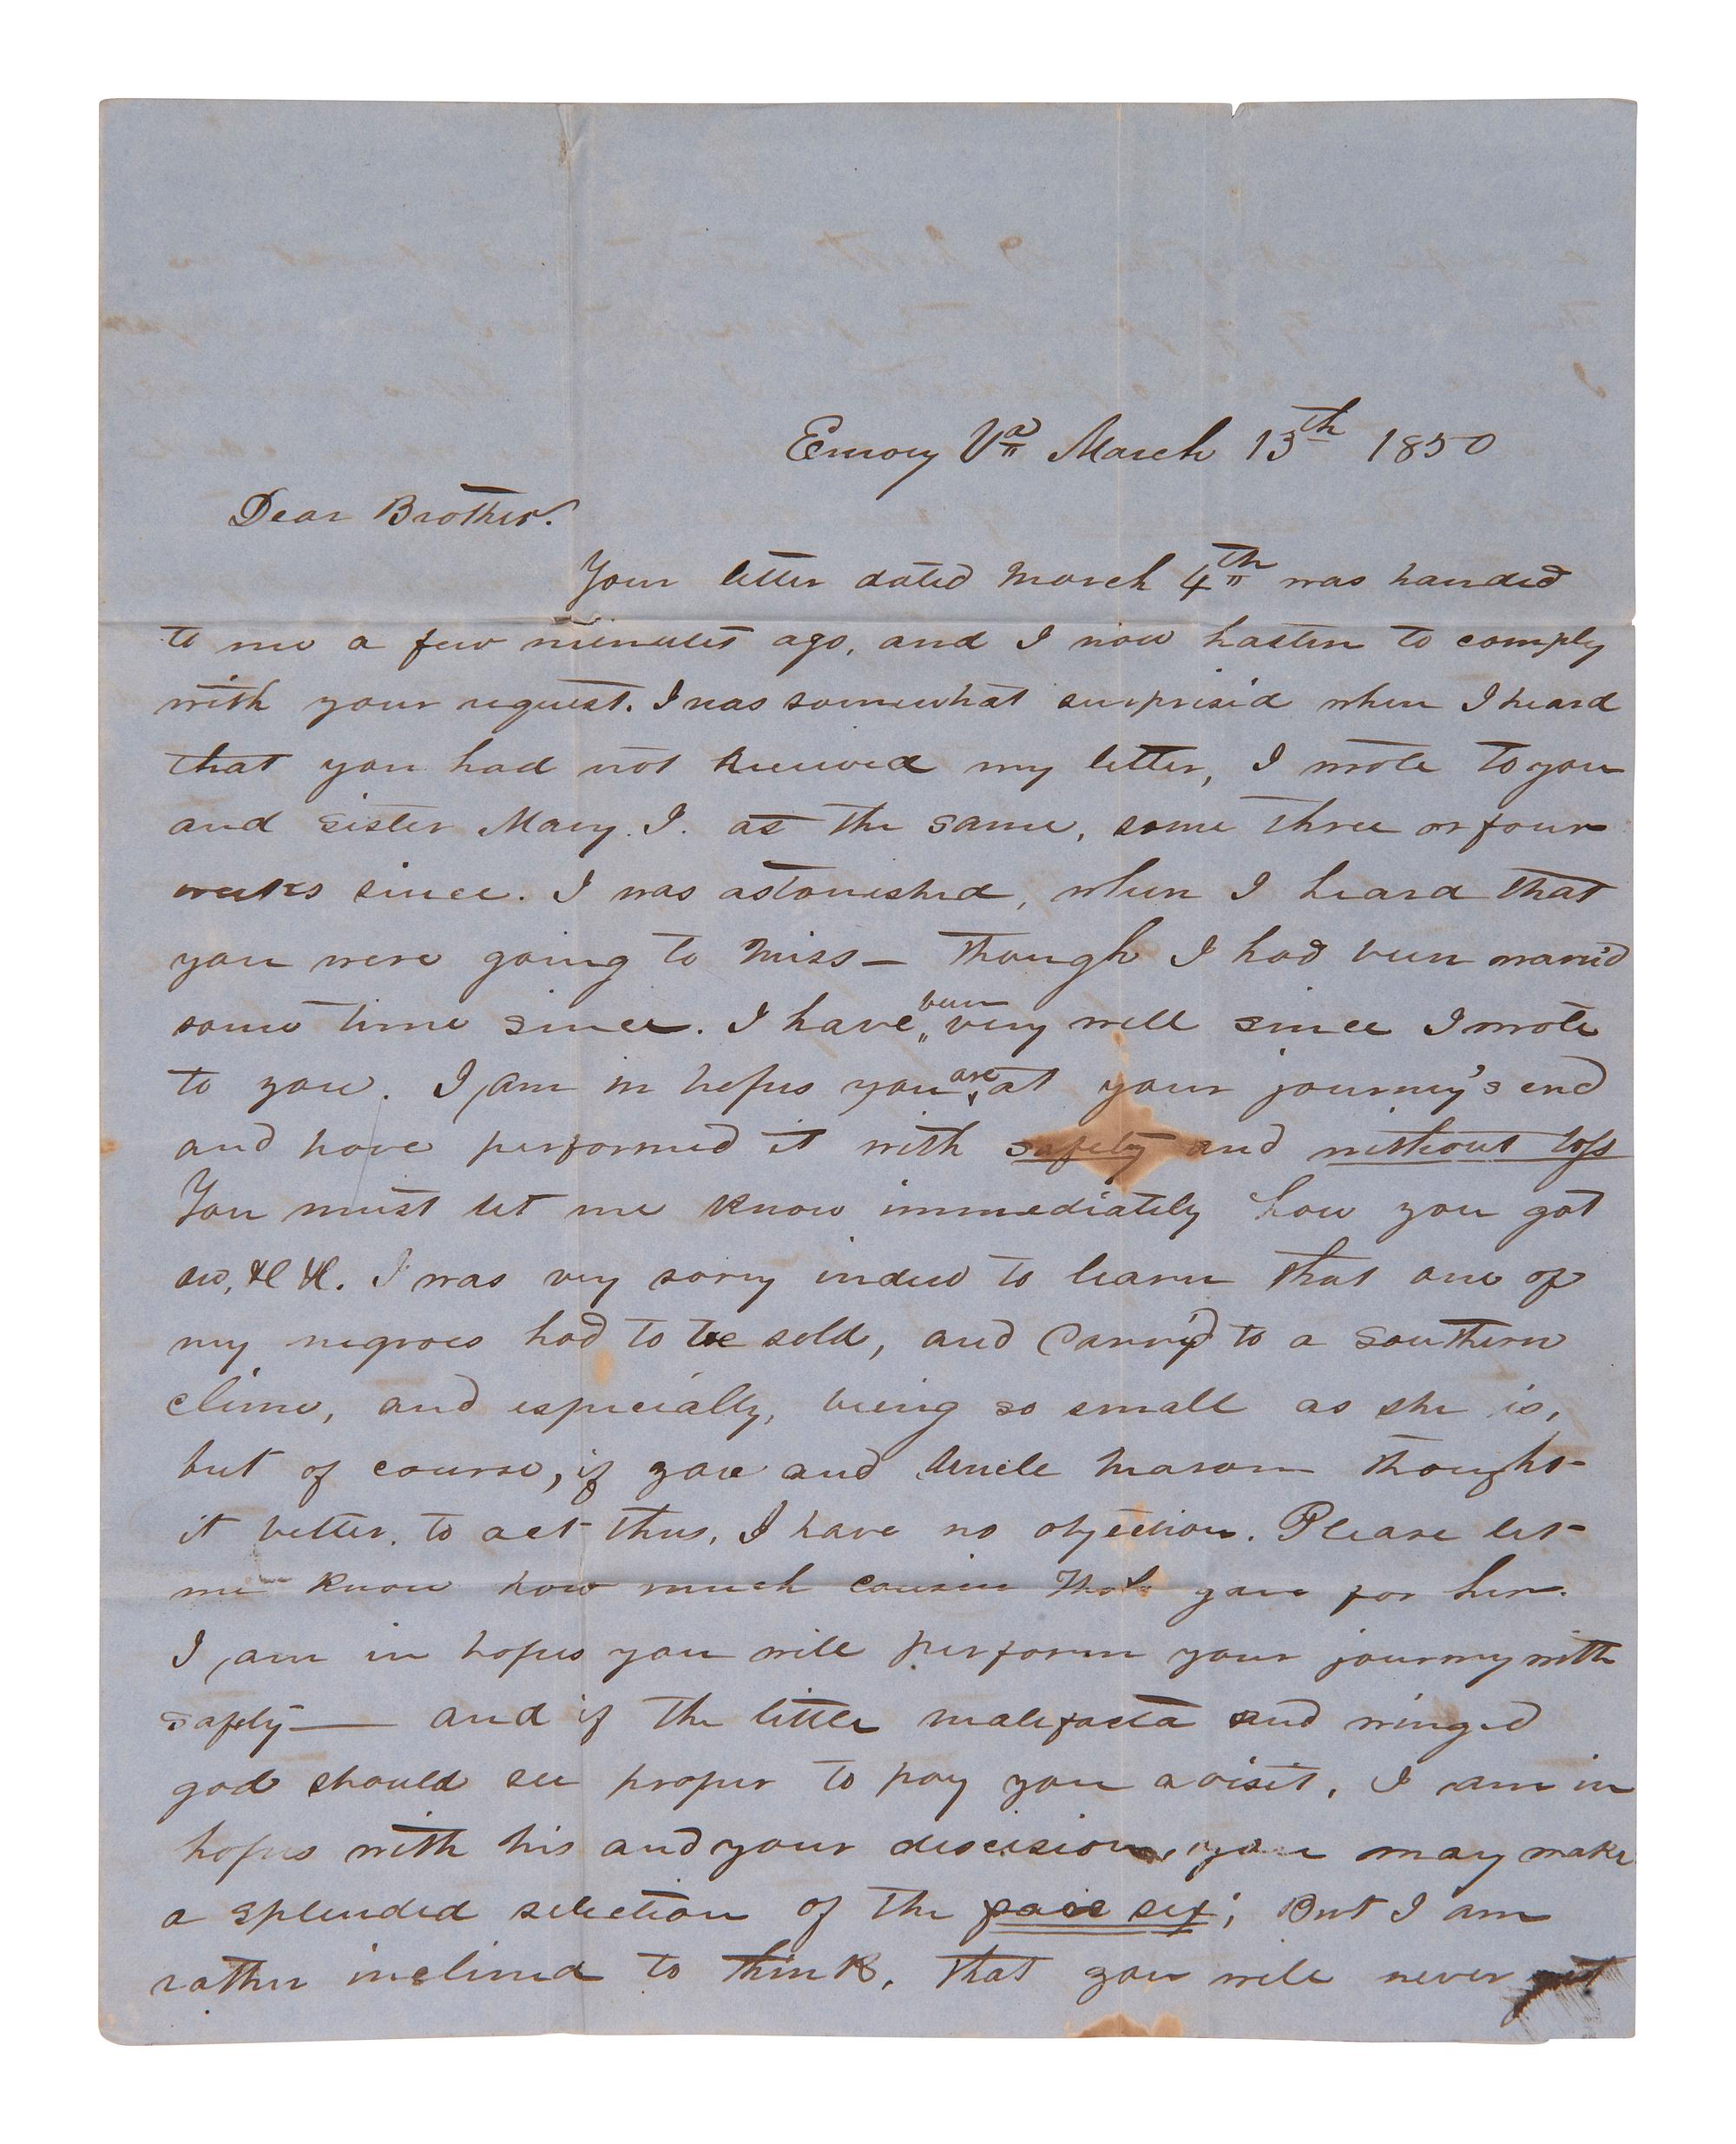 Emory Va March 13th 1850
Dear Brother.
Your letter dated March 4th was handed
to me a few minutes ago, and I now hasten to comply
with your request. I was somewhat surpris'd when I heard
that you had not received my letter, I wrote to you
and sister Mary. J. at the same, some three or four
weeks since. I was astonished, when I heard that
you were going to Miss— though I had been
some time since. I have been very well since I wrote
to you. I am in hopes you are at your journey's end
and have performed it with safety and without loss
You must let me know immediately how you got
on, &C &C. I was very sorry indeed to learn that one of
my negroes had to be sold, and carry'd to a southern
clime, and especially, being so small as she is,
but of course, if you and Uncle Mason thought
it better. to act thus, I have no objection. Please let
me know how much cousin Thos gave for her.
I am in hopes you will perform your journey with
safety— and if the little malefacta and winged
god should see proper to pay you a visit, I am in
hopes with his and your descision, you may make
a splended selection of the fair sex; But I am
rather inclined to think, that you will never